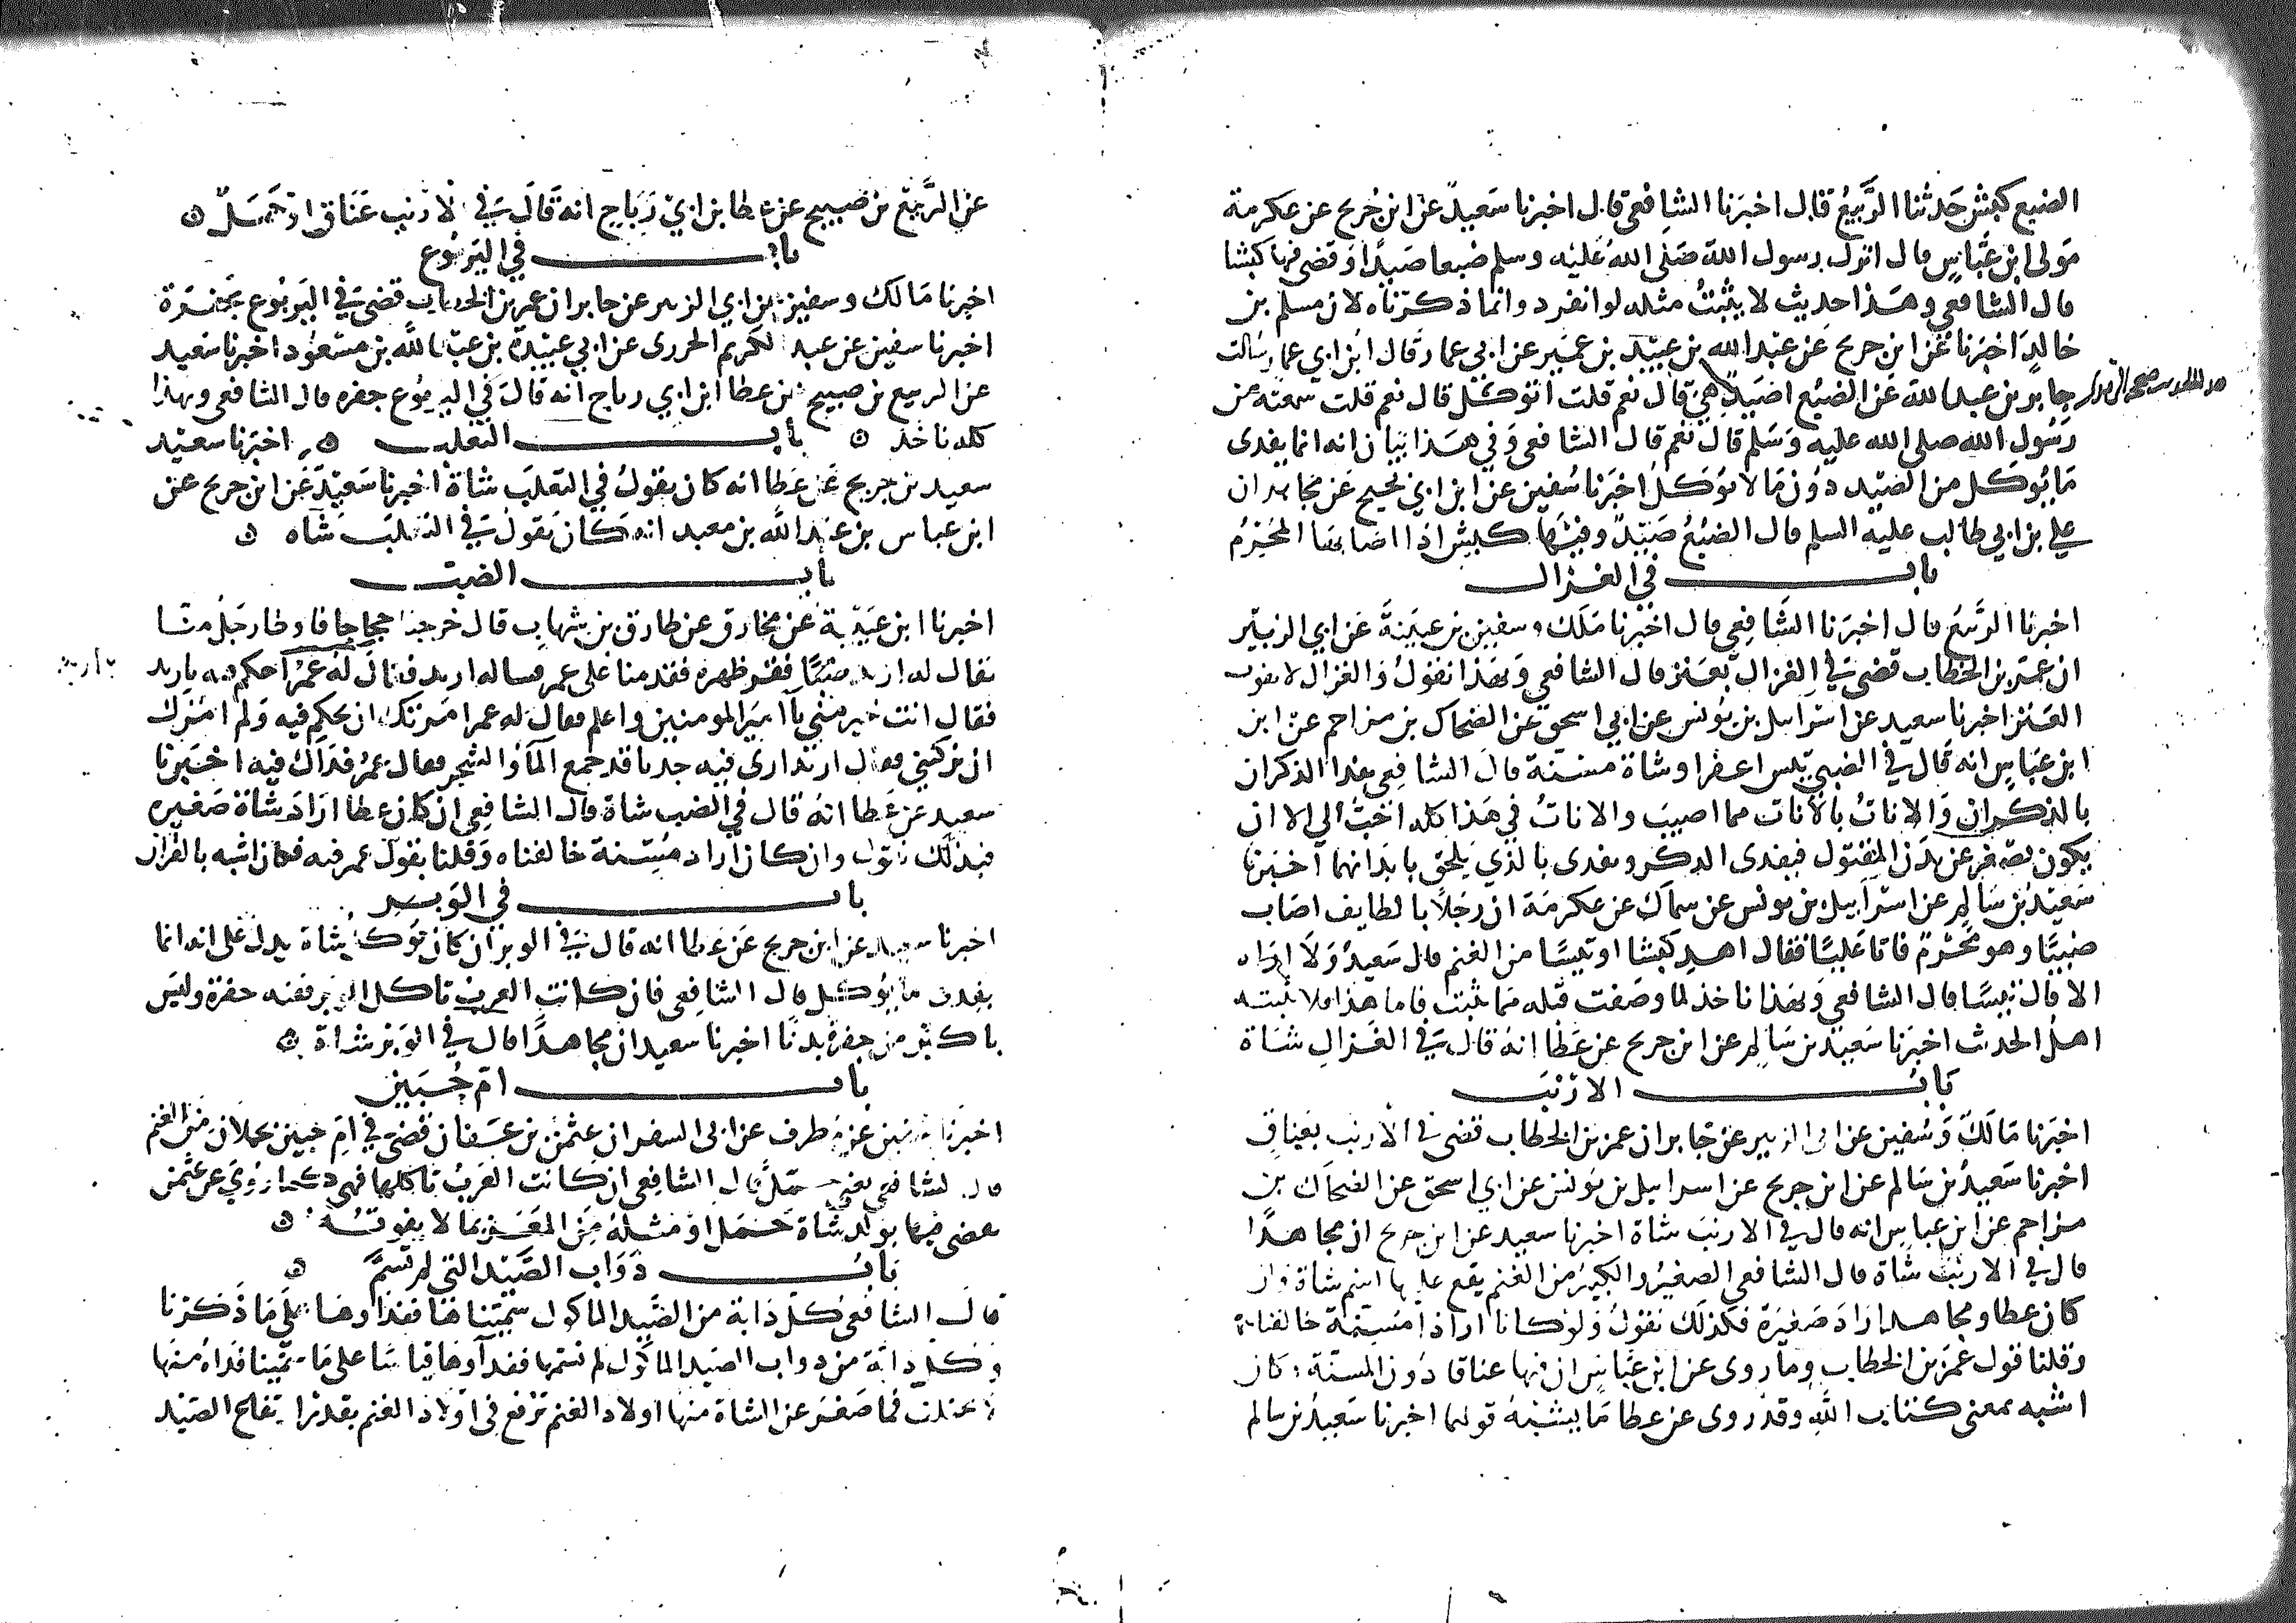 الضبع كبش حدثنا الربيع قال اخبرنا الشافعي قال اخبرنا سعيد عن ابن جريج عن عكرمة
مولى ابن عباس قال انزل رسول الله صلى الله عليه وسلم ضبعا صيدا وقضى فيها كبشا
قال الشافعي وهذا حديث لا يثبت مثله لو انفرد وانما ذكرناه لان مسلم بن
خالد اخبرنا عن ابن جريج عن عبد الله بن عبيد بن عمير عن ابي عمار قال ابن ابي عمار سالت
جابر بن عبد الله عن الضبع اصيد هي قال نعم قلت اتوكل قال نعم قلت سمعته من
رسول الله صلى الله عليه وسلم قال نعم قال الشافعي وفي هذا بيان انه انما يفدى
ما يوكل من الصيد دون ما لا يوكل اخبرنا سفين عن ابن ابي نجيح عن مجاهد ان
علي بن ابي طالب عليه السلم قال الضبع صيد وفيها كبش اذا اصابها المحرم
باب في الغزال
اخبرنا الربيع قال اخبرنا الشافعي قال اخبرنا ملك وسفين بن عيينة عن ابي الزبير
ان عمر بن الخطاب قضى في الغزال بعنز قال الشافعي وبهذا نقول والغزال لا يفوت
العنز اخبرنا سعيد عن اسرايل بن يونس عن ابي اسحق عن الضحاك بن مزاحم عن ابن
ابن عباس انه قال في الظبي تيس اعفر او شاة مسنة قال الشافعي بهذا الذكران
بالذكران والاناث بالاناث مما اصيب والاناث في هذا كله احب الي الا ان
يكون يصغر عن بدن المقتول فيفدى الذكر ويفدى بالذي يلحق بابدانهما اخبرنا
سعيد بن سالم عن اسراييل بن يونس عن سماك عن عكرمة ان رجلا بالطايف اصاب
ظبيا وهو محرم فاتا عليا فقال اهد كبشا او تيسا من الغنم قال سعيد ولا اراه
الا قال تيسا قال الشافعي وبهذا ناخذ لما وصفت قبله مما يثبت فاما هذا فلا يثبته
اهل الحديث اخبرنا سعيد بن سالم عن ابن جريج عن عطا انه قال في الغزال شاة
باب الارنب
اخبرنا مالك وسفين عن ابي الزبير عن جابر ان عمر بن الخطاب قضى في الارنب بعناق
اخبرنا سعيد بن سالم عن ابن جريج عن اسرايل بن يونس عن ابي اسحق عن الضحاك بن
مزاحم عن ابن عباس انه قال في الارنب شاة اخبرنا سعيد عن ابن جريج ان مجاهدا
قال في الارنب شاة قال الشافعي الصغير والكبير من الغنم يقع عليها اسم شاة فان
كان عطا ومجاهد اراد صغيرة فكذلك نقول ولو كانا ارادا مسنة خالفناهما
وقلنا قول عمر بن الخطاب وما روى عن ابن عباس ان فيها عناقا دون المسنة وكان
اشبه بمعنى كتاب الله وقد روى عن عطا ما يشبه قولهما اخبرنا سعيد بن سالم
عن الربيع بن صبيح عن عطا بن ابي رباح انه قال في الارنب عناق او حمل
باب في اليربوع
اخبرنا مالك وسفين عن ابي الزبير عن جابر ان عمر بن الخطاب قضى في اليربوع بجفرة
اخبرنا سفين عن عبد الكريم الجزري عن ابي عبيدة بن عبد الله بن مسعود اخبرنا سعيد
عن الربيع بن صبيح عن عطا ابن ابي رباح انه قال في اليربوع جفره قال الشافعي وبهذا
كله ناخذ باب الثعلب اخبرنا سعيد
سعيد بن جريج عن عطا انه كان يقول في الثعلب شاة اخبرنا سعيد عن ابن جريج عن
ابن عباس بن عبد الله بن معبد انه كان يقول في الثعلب شاه
باب الضب
اخبرنا ابن عيينة عن مخارق عن طارق بن شهاب قال خرجنا حجاجا فاوطا رجل منا
يقال له اربد ضبا ففقر ظهره فقدمنا على عمر فساله اربد فقال له عمر احكم فيه يا اربد
فقال انت خير مني يا امير المومنين واعلم فقال له عمر امرتك ان تحكم فيه ولم امرك
ان تزكيني فقال اربد ارى فيه جديا قد جمع الما والشجر فقال عمر فذاك فيه اخبرنا
سعيد عن عطا انه قال في الضب شاة قال الشافعي ان كان عطا اراد شاة صغيره
فبذلك نقول وان كان اراد مسنة خالفناه وقلنا بقول عمر فيه فكان اشبه بالقران
باب في الوبر
اخبرنا سعيد عن ابن جريج عن عطا انه قال في الوبر ان كان توكل شاة يدل على انه انما
يفدى ما يوكل قال الشافعي فان كانت العرب تاكل الوبر ففيه جفرة وليس
باكثر من جفرة بدنا اخبرنا سعيد ان مجاهدا قال في الوبر شاة
باب ام حبين
اخبرنا سفين عن مطرف عن ابي السفر ان عثمن بن عفان قضى في ام حبين بحملان من الغنم
قال الشافعي يعني حملا قال الشافعي ان كانت العرب تاكلها فهي كما روي عن عثمن
يقضى فيها بولد شاة حمل او مثله من المعز مما لا يفوته
باب دواب الصيد التي لم تسم
قال الشافعي كل دابة من الصيد الماكول سميناها ففداوها على ما ذكرنا
وكل دابة من دواب الصيد الماكول لم نسمها ففداوها قياسا على ما سمينا فداه منها
لا يختلف فما صغر عن الشاة منها اولاد الغنم يرفع في اولاد الغنم بقدر ارتفاع الصيد